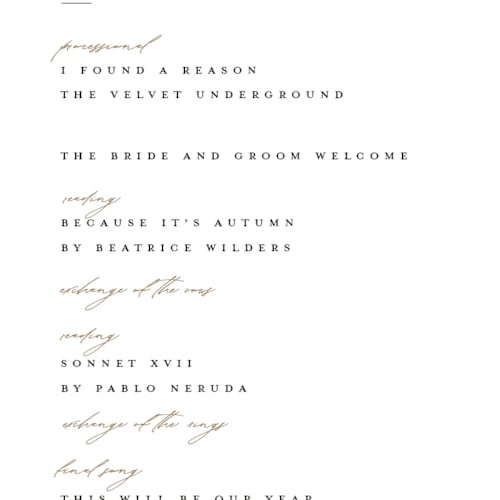 processional
I FOUND A REASON
THE VELVET UNDERGROUND
THE BRIDE AND GROOM WELCOME
reading
BECAUSE IT'S AUTUMN
BY BEATRICE WILDERS
exchange of the vows
reading
SONNET XVII
BY PABLO NERUDA
exchange of the rings
final song
THIS WILL BE OUR YEAR